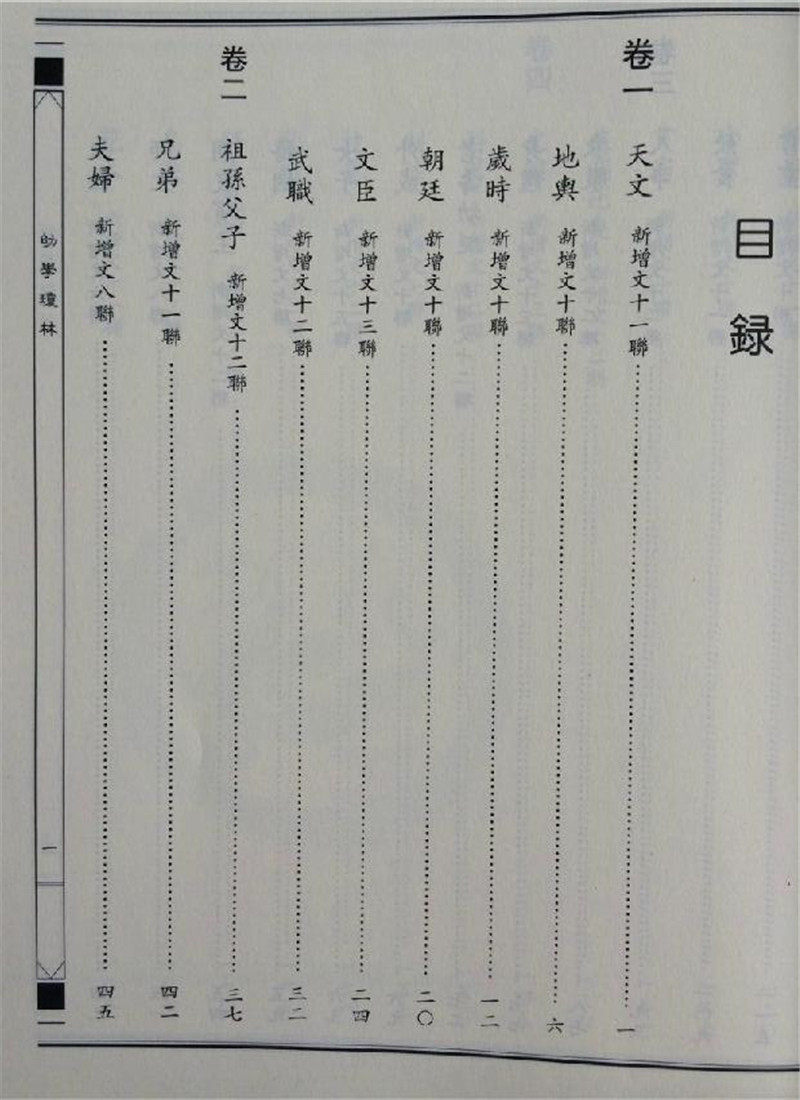 目録
卷一
天文 新增文十一聯 一
地輿 新增文十聯 六
歲時 新增文十聯 一二
朝廷 新增文十聯 二〇
文臣 新增文十三聯 二四
武職 新增文十二聯 三二
卷二
祖孫父子 新增文十二聯 三七
兄弟 新增文十一聯 四二
夫婦 新增文八聯 四五
幼學瓊林
一